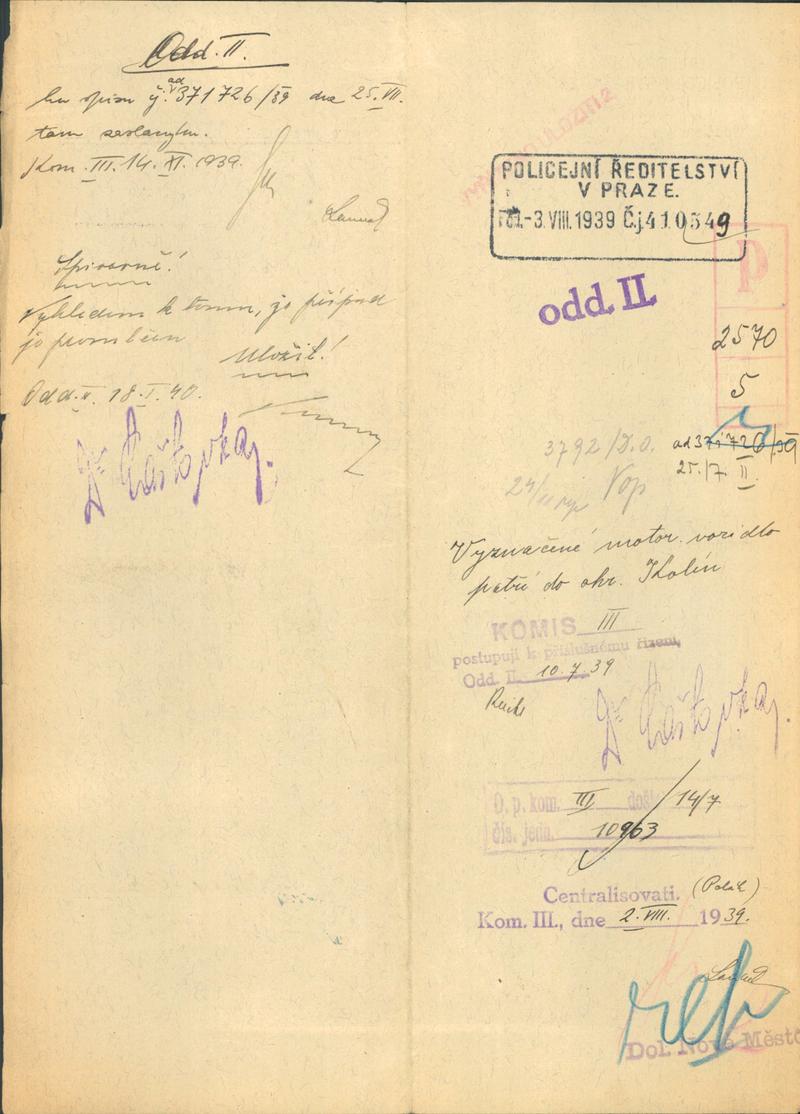 Odd. II.
ku spisu č. ad 371726/39 dne 25. VII.
tam zaslanému.
Kom. III. 14. XI. 1939.
Spisovně!
Vzhledem k tomu, že případ
je promlčen
Uložit!
Odd. II. 18. I. 40.
Dr Částka
POLICEJNÍ ŘEDITELSTVÍ
V PRAZE.
-3. VIII. 1939 Č.j. 410549
odd. II.
P
2570
5
3792/D.O.
ad 371726/39
25./7. II
24/11
Vyznačené motor. vozidlo
patří do okr. Kolín
KOMIS III
postupuji k příslušnému řízení,
Odd. II. 10.7.39
O. p. kom. III došlo 14/7
čís. jedn. 10963
Centralisovati. (Polák)
Kom. III., dne 2. VIII. 1939.
Dol. Nové Město